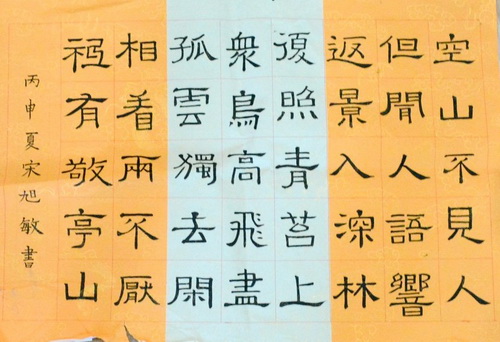 空山不見人
但聞人語響
返景入深林
復照青苔上
衆鳥高飛盡
孤雲獨去閑
相看兩不厭
祗有敬亭山
丙申夏宋旭敏書